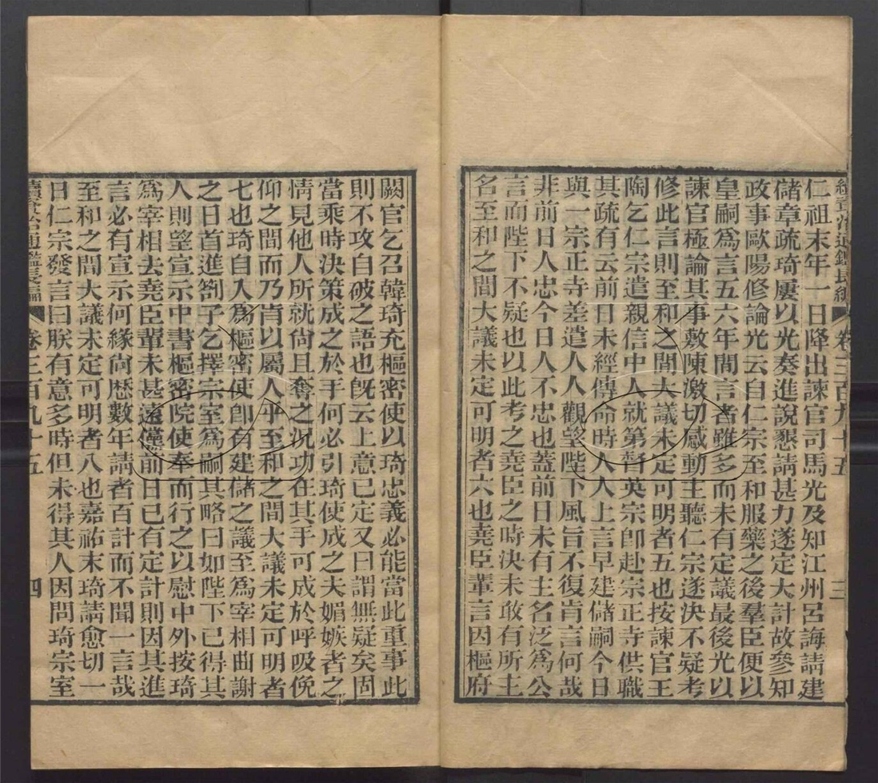 續資治通鑑長編 卷三百九十五 三
仁祖末年一日降出諫官司馬光及知江州呂誨請建
儲章疏琦屢以光奏進說懇請甚力遂定大計故參知
政事歐陽修論光云自仁宗至和服藥之後羣臣便以
皇嗣爲言五六年間言者雖多而未有定議最後光以
諫官極論其事敷陳激切感動主聽仁宗遂決不疑考
修此言則至和之間大議未定可明者五也按諫官王
陶乞仁宗遣親信中人就第督英宗卽赴宗正寺供職
其疏有云前日未經傳命時人人上言早建儲嗣今日
與一宗正寺差遣人人觀望陛下風旨不復肯言何哉
非前日人忠今日人不忠也蓋前日未有主名泛爲公
言而陛下不疑也以此考之堯臣之時決未敢有所主
名至和之間大議未定可明者六也堯臣輩言因樞府
闕官乞召韓琦充樞密使以琦忠義必能當此重事此
則不攻自破之語也旣云上意已定又曰謂無疑矣固
當乘時決策成之於手何必引琦使成之夫媢嫉者之
情見他人所就尙且奪之況功在其手可成於呼吸俛
仰之間而乃肯以屬人乎至和之間大議未定可明者
七也琦自入爲樞密使卽有建儲之議至爲宰相曲謝
之日首進劄子乞擇宗室爲嗣其略曰如陛下已得其
人則望宣示中書樞密院使奉而行之以慰中外按琦
爲宰相去堯臣輩未甚遠儻前日已有定計則因其進
言必有宣示何緣尙歷數年請者百計而不聞一言哉
至和之間大議未定可明者八也嘉祐末琦請愈切一
日仁宗發言曰朕有意多時但未得其人因問琦宗室
續資治通鑑長編 卷三百九十五 四